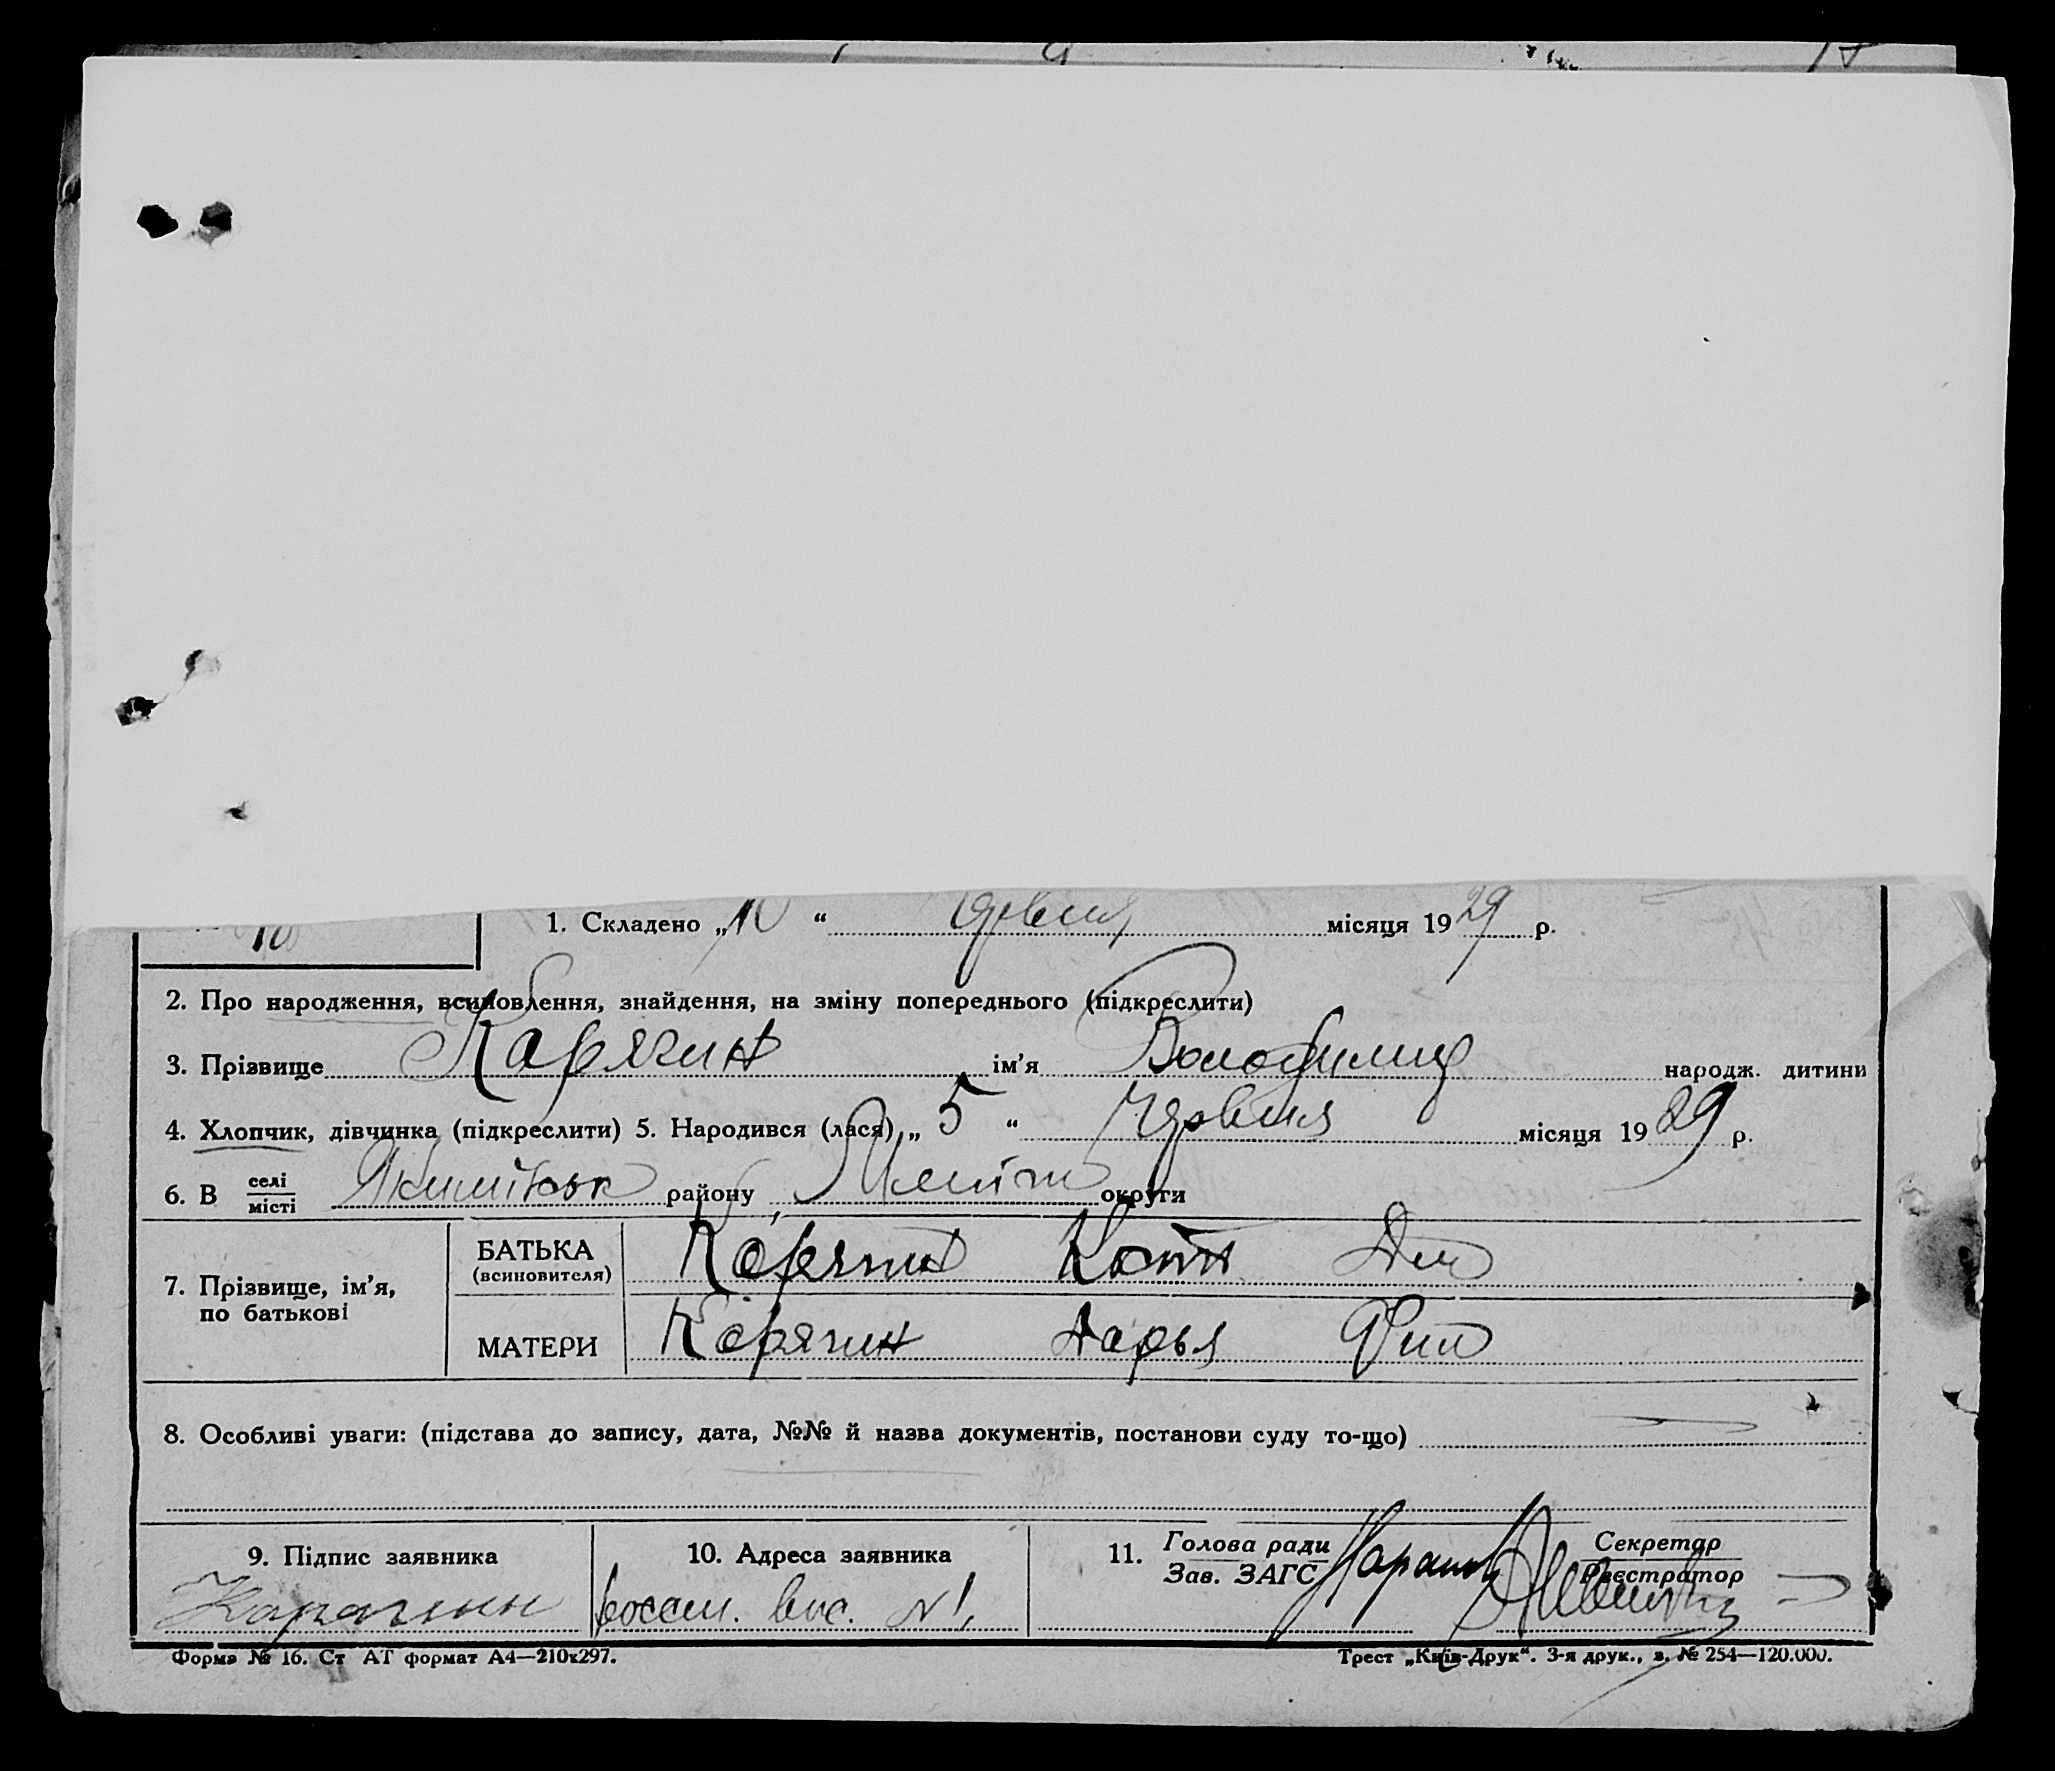 10
1. Складено „10“ Червня місяця 1929 р.
2. Про народження, всиновлення, знайдення, на зміну попереднього (підкреслити)
3. Прізвище Карягин ім'я Володимир народж. дитини
4. Хлопчик, дівчинка (підкреслити) 5. Народився (лася) „5“ Червня місяця 1929 р.
6. В селі місті району Меліт округи
7. Прізвище, ім'я, по батькові
БАТЬКА (всиновителя) Карягин Конст
МАТЕРИ Карягин Дарья Фил
8. Особливі уваги: (підстава до запису, дата, №№ й назва документів, постанови суду то-що)
9. Підпис заявника 10. Адреса заявника 11. Голова ради Зав. ЗАГС Секретар Реєстратор
Карагин N 1,
Форма № 16. Ст АТ формат А4—210х297. Трест „Київ-Друк“. 3-я друк., з. № 254—120.000.